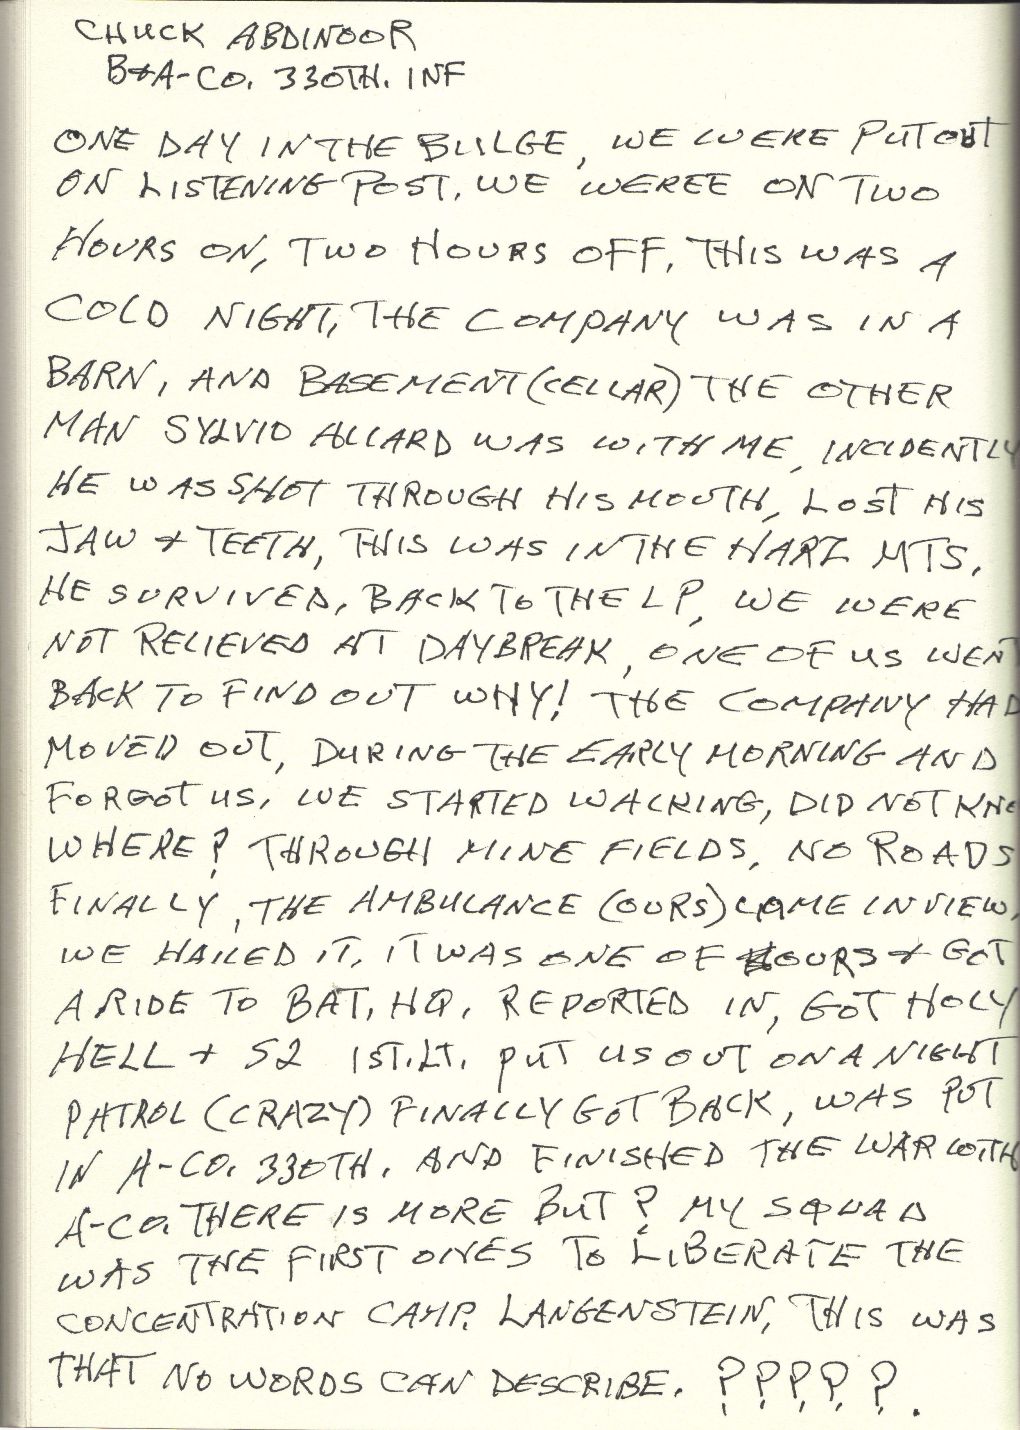 CHUCK ABDINOOR
B+A-CO. 330TH. INF
ONE DAY IN THE BULGE, WE WERE PUT OUT
ON LISTENING POST. WE WEREE ON TWO
HOURS ON, TWO HOURS OFF. THIS WAS A
COLD NIGHT, THE COMPANY WAS IN A
BARN, AND BASEMENT (CELLAR) THE OTHER
MAN SYLVIO ALLARD WAS WITH ME, INCIDENTLY
HE WAS SHOT THROUGH HIS MOUTH, LOST HIS
JAW + TEETH, THIS WAS IN THE HARZ MTS.
HE SURVIVED, BACK TO THE LP, WE WERE
NOT RELIEVED AT DAYBREAK, ONE OF US WENT
BACK TO FIND OUT WHY! THE COMPANY HAD
MOVED OUT, DURING THE EARLY MORNING AND
FORGOT US. WE STARTED WALKING, DID NOT KNO
WHERE? THROUGH MINE FIELDS, NO ROADS
FINALLY, THE AMBULANCE (OURS) CAME IN VIEW,
WE HAILED IT, IT WAS ONE OF OURS + GOT
A RIDE TO BAT, HQ. REPORTED IN, GOT HOLY
HELL + S2 1ST.LT. PUT US OUT ON A NIGHT
PATROL (CRAZY) FINALLY GOT BACK, WAS PUT
IN A-CO. 330TH. AND FINISHED THE WAR WITH
A-CO. THERE IS MORE BUT? MY SQUAD
WAS THE FIRST ONES TO LIBERATE THE
CONCENTRATION CAMP. LANGENSTEIN, THIS WAS
THAT NO WORDS CAN DESCRIBE. ?????.